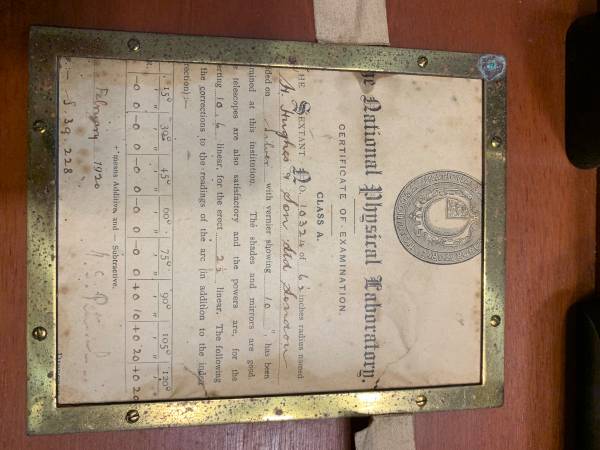 The National Physical Laboratory.
CERTIFICATE OF EXAMINATION.
CLASS A.
THE SEXTANT NO. 10324 of 6½ inches radius named
H. Hughes & Son Ltd London
ded on Silver with vernier showing 10 ", has been
mined at this institution. The shades and mirrors are good.
telescopes are also satisfactory and the powers are, for the
rting 10, 6 linear, for the erect 2½ linear. The following
the corrections to the readings of the arc (in addition to the index
rection):—
15° 30° 45° 60° 75° 90° 105° 120°
-0 0 -0 0 -0 0 -0 0 -0 0 +0 10 +0 20 +0 20
+ means Additive, and — Subtractive.
February 1920
S 39 228